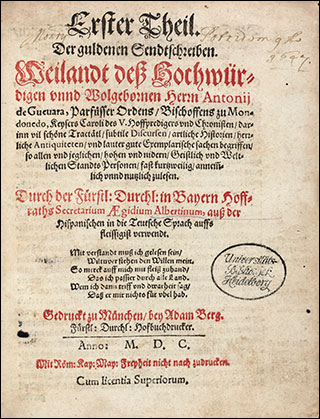 Erster Theil.
Der guldenen Sendtschreiben.
Weilandt deß Hochwür-
digen vnnd Wolgebornen Herrn Antonij
de Gueuara, Parfüsser Ordens / Bischoffens zu Mon-
donedo, Keysers Caroli des V. Hoffpredigers vnd Chronisten / dar-
inn vil schöne Tractätl / subtile Discursen / artliche Historien / herr-
liche Antiquiteten / vnd lauter gute Exemplarische sachen begriffen /
so allen vnd jeglichen / hohen vnd nidern / Geistlich vnd Welt-
lichen Standts Personen / fast kurtzweilig / anmutig /
lich vnnd nutzlich zulesen.
Durch der Fürstl: Durchl: in Bayern Hoff-
raths Secretarium Ægidium Albertinum, auß der
Hispanischen in die Teutsche Sprach auffs
fleissigist verwendt.
Mit verstandt muß ich gelesen sein /
Mit worstehen den Willen mein.
So merck auff mich mit fleiß zuhand /
Das ich passier durch alle Land.
Wem ich dann triff vnd drwarheit sag /
Daß er mir nichts für vbel hab.
Gedruckt zu München / bey Adam Berg.
Fürstl: Durchl: Hofbuchdrucker.
Anno: M. D. C.
Mit Röm: Kay: May: Freyheit nicht nach zudrucken.
Cum licentia Superiorum.
Universitäts-
Bibliothek
Heidelberg